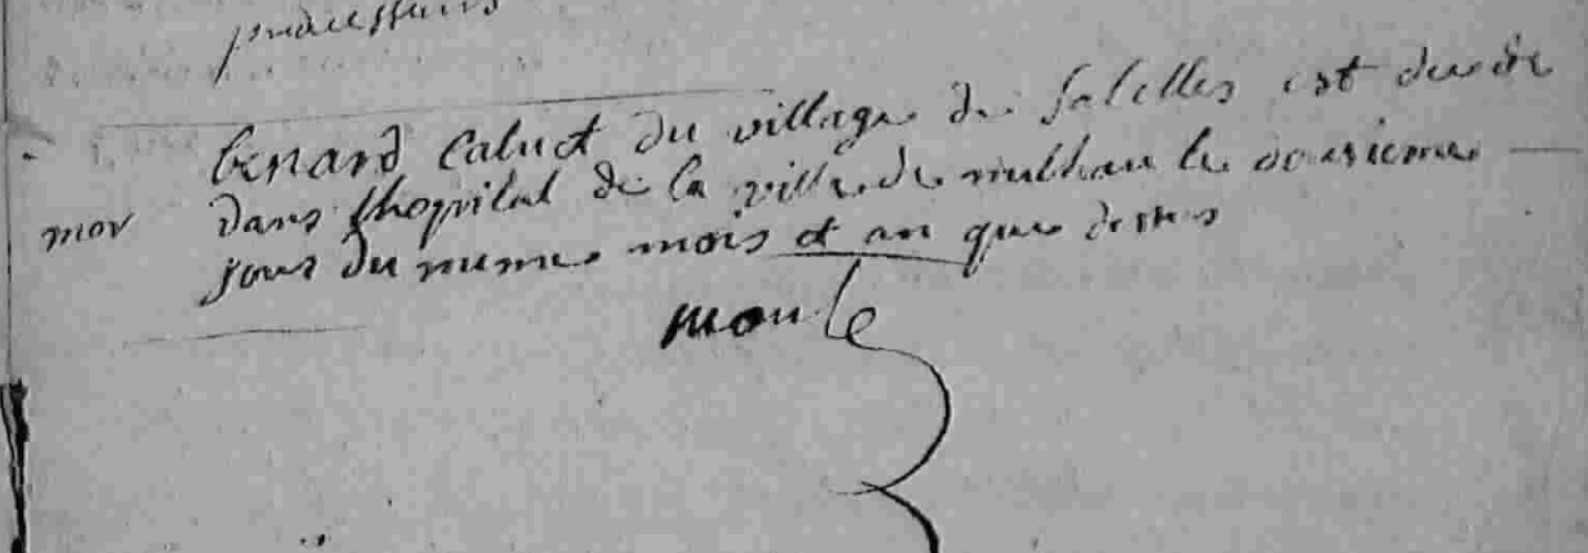 benard Caluet du village de salelles est decede
mor dans lhopital de la ville de milhau le onsieme
jour du meme mois et an que dessus